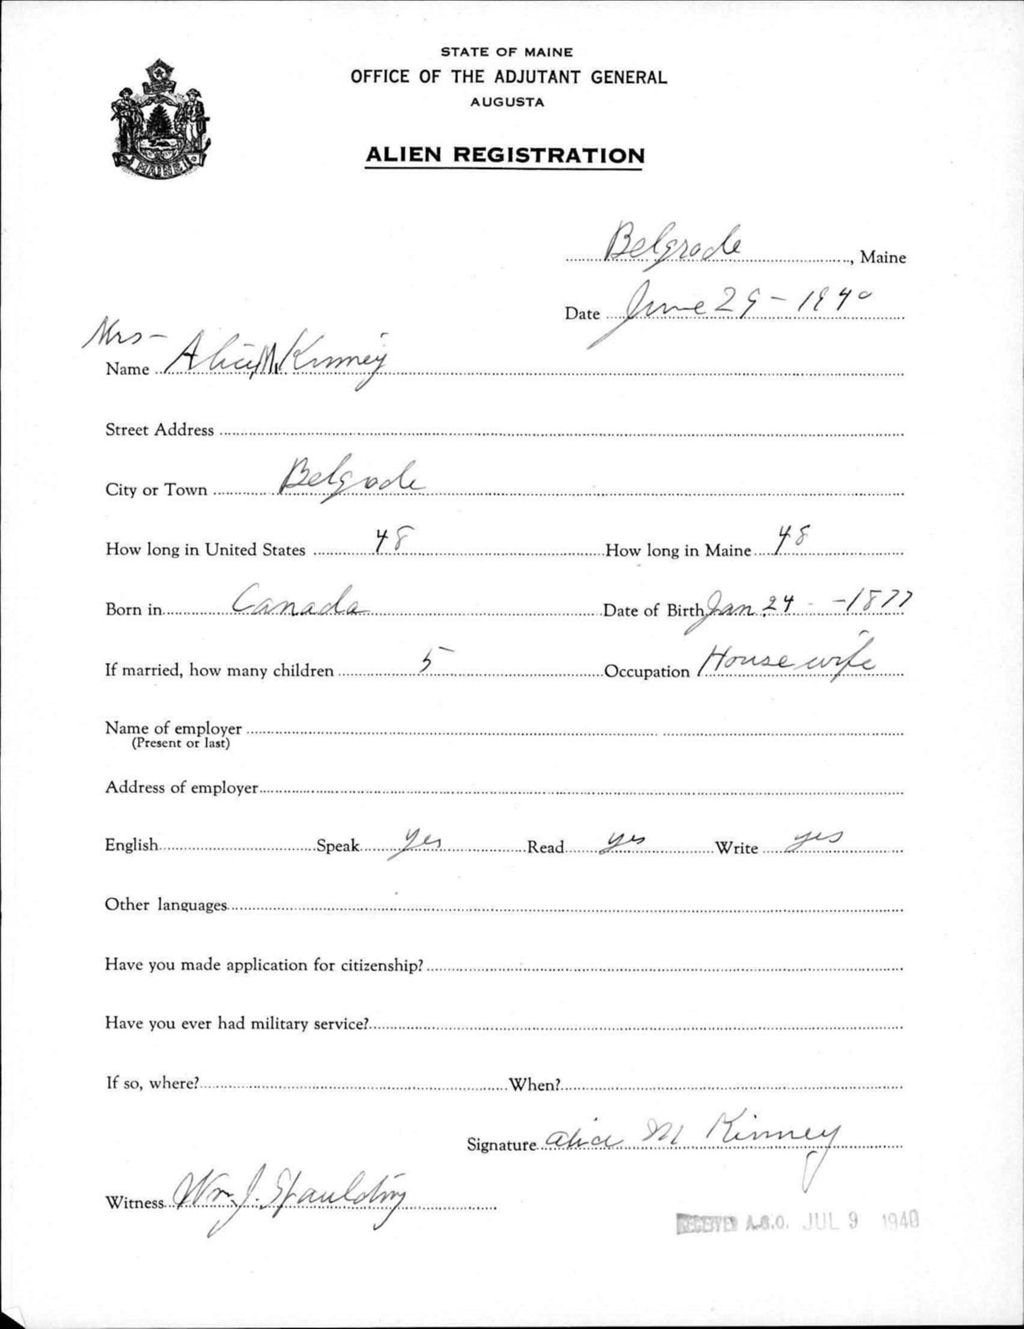 STATE OF MAINE
OFFICE OF THE ADJUTANT GENERAL
AUGUSTA
MAINE
ALIEN REGISTRATION
Belgrade, Maine
Date June 29 - 1940
Mrs -
Name Alice M. Kinney
Street Address
City or Town Belgrade
How long in United States 48 How long in Maine 48
Born in Canada Date of Birth Jan. 24 - 1877
If married, how many children 5 Occupation House wife
Name of employer
(Present or last)
Address of employer
English Speak yes Read yes Write yes
Other languages
Have you made application for citizenship?
Have you ever had military service?
If so, where? When?
Signature Alice M Kinney
Witness Wm J. Spaulding
RECEIVED A.G.O. JUL 9 1940